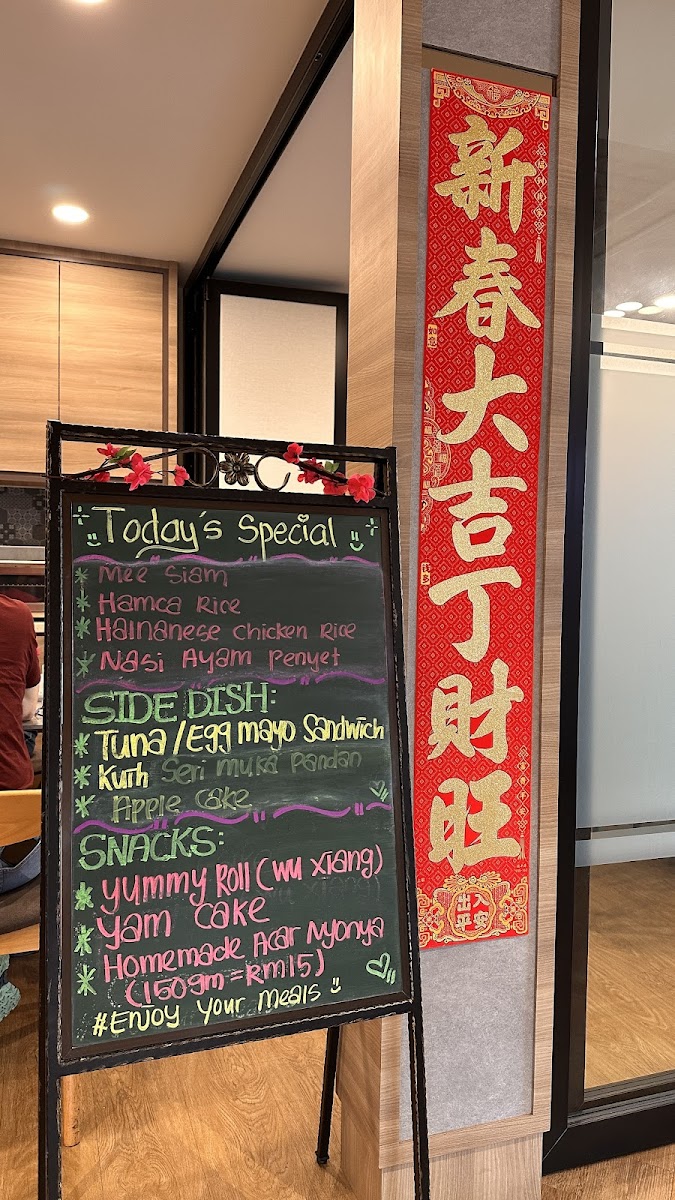 Today's Special
Mee Siam
Hamca Rice
Hainanese Chicken Rice
Nasi Ayam Penyet
SIDE DISH:
Tuna/Egg mayo Sandwich
Kuih Seri muka Pandan
Apple Cake
SNACKS:
Yummy Roll (wu xiang)
Yam Cake
Homemade Acar Nyonya
(150gm=Rm15)
#Enjoy your meals
新春大吉丁財旺
出入
平安